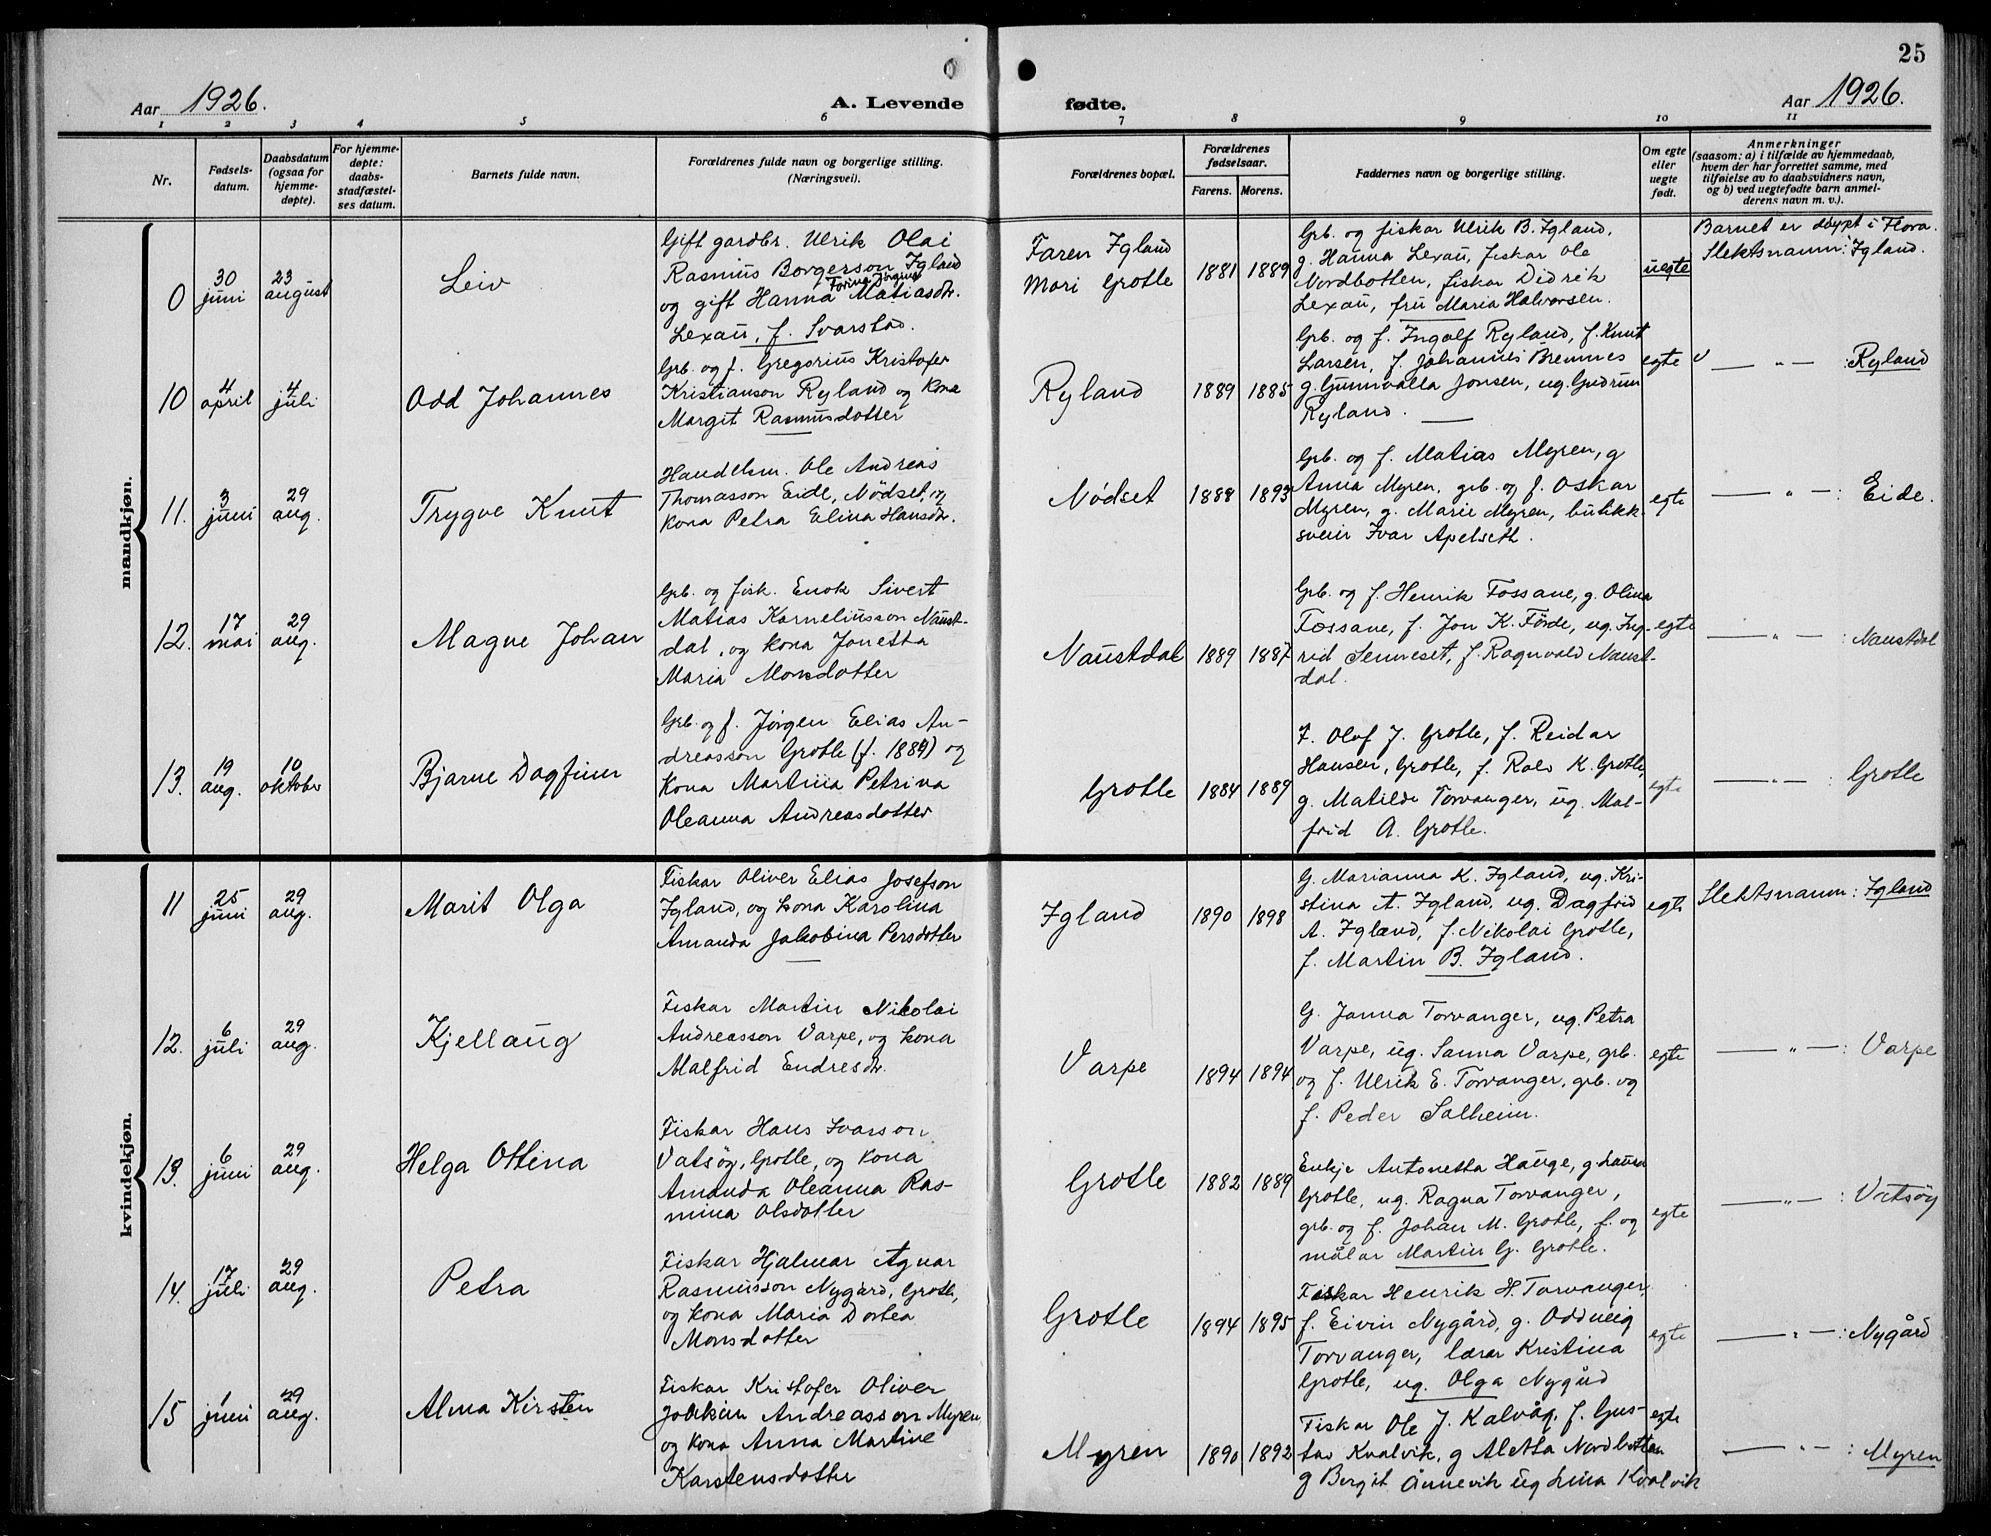 25
Aar 1926.
A. Levende fødte.
Aar 1926.
1 2 3 4 5 6 7 8 9 10 11
Nr.
Fødsels-
datum.
Daabsdatum
(ogsaa for
hjemme-
døpte).
For hjemme-
døpte:
daabs-
stadfæstel-
ses datum.
Barnets fulde navn.
Forældrenes fulde navn og borgerlige stilling.
(Næringsvei).
Forældrenes bopæl.
Forældrenes
fødselsaar.
Farens. Morens.
Faddernes navn og borgerlige stilling.
Om egte
eller
uegte
født.
Anmerkninger
(saasom: a) i tilfælde av hjemmedaab,
hvem der har forrettet samme, med
tilføielse av to daabsvidners navn,
og b) ved uegtefødte barn anmel-
derens navn m. v.).
mandkjøn.
0
30
juni
23
august
Leiv
Gift gardbr. Ulrik Olai
Rasmus Borgerson Igland
og gift Hanna Torina Jørgine Matiasdr.
Lexau, f. Svarstad.
Faren Igland
Mori Grotle
1881 1889
Grb. og fiskar Ulrik B. Igland,
g. Hanna Lexau, fiskar Ole
Nordbotten, fiskar Didrik
Lexau, fru Maria Halvorsen.
uegte
Barnet er døypt i Flora.
Slektsnamn: Igland.
10
4
april
4
juli
Odd Johannes
Grb. og f. Gregorius Kristofer
Kristianson Ryland og kona
Margit Rasmusdotter
Ryland
1889 1885
Grb. og f. Ingolf Ryland, f. Knut
Larsen, f. Johannes Bremnes
g. Gunnvalla Jonsen, ug. Gudrun
Ryland.
egte
— „ — : Ryland
11.
3
juni
29
aug.
Trygve Knut
Handelsm. Ole Andreas
Thomasson Eide, Nødset, og
kona Petra Elina Hansdr.
Nødset
1888 1893
Grb. og f. Matias Myren, g
Anna Myren, grb. og f. Oskar
Myren, g. Marie Myren, butikk-
svein Ivar Apelseth.
egte
— „ — : Eide.
12.
17
mai
29
aug.
Magne Johan
Grb. og fisk. Enok Sivert
Matias Korneliusson Naust-
dal, og kona Jonetta
Maria Monsdotter
Naustdal
1889 1887
Grb. og f. Henrik Fossane, g. Olina
Fossane, f. Jon K. Förde, ug. Ing-
rid Senneset, f. Ragnvald Naust-
dal.
egte
— „ — : Naustdal
13.
19
aug.
10
oktober
Bjarne Dagfinn
Grb. og f. Jørgen Elias An-
dreasson Grotle (f. 1884) og
kona Martina Petrina
Oleanna Andreasdotter
Grotle
1884 1889
F. Olof J. Grotle, f. Reidar
Hansen, Grotle, f. Rolv K. Grotle,
g. Matilde Torvanger, ug. Mal-
frid A. Grotle.
egte
— „ — : Grotle
kvindekjøn.
11
25
juni
29
aug.
Marit Olga
Fiskar Oliver Elias Josefson
Igland, og kona Karolina
Amanda Jakobina Persdotter
Igland
1890 1898
G. Marianna K. Igland, ug. Kri-
stina A. Igland, ug. Dagfrid
A. Igland, f. Nikolai Grotle,
f. Martin B. Igland.
egte
Slektsnamn: Igland
12.
6
juli
29
aug.
Kjellaug
Fiskar Martin Nikolai
Andreasson Varpe, og kona
Malfrid Endresdr.
Varpe
1894 1894
G. Janna Torvanger, ug. Petra
Varpe, ug. Sanna Varpe, grb.
og f. Ulrik E. Torvanger, grb. og
f. Peder Solheim.
egte
— „ — : Varpe
13.
6
juni
29
aug.
Helga Ottina
Fiskar Hans Ivarson
Vatsøy, Grotle, og kona
Amanda Oleanna Ras-
mina Olsdotter
Grotle
1882 1889
Enkje Antonetta Hauge, g. Laura
Grotle, ug. Ragna Torvanger,
grb. og f. Johan M. Grotle, f. og
målar Martin G. Grotle.
egte
— „ — : Vatsøy
14.
17
juli
29
aug.
Petra
Fiskar Hjalmar Agnar
Rasmusson Nygård, Grotle,
og kona Maria Dortea
Monsdotter
Grotle
1894 1895
Fiskar Henrik H. Torvanger,
f. Eivin Nygård, g. Oddneig
Torvanger, lærar Kristina
Grotle, ug. Olga Nygård
egte
— „ — : Nygård
15
1
juni
29
aug.
Alma Kirsten
Fiskar Kristofer Oliver
Joakim Andreasson Myren
og kona Anna Martine
Karstensdotter
Myren
1890 1892
Fiskar Ole J. Kalvåg, f. Gus-
tav Kvalvik, g Aletta Nordbotten
g Bergit Ånnevik ug Lina Kvalvik
egte
— „ — : Myren